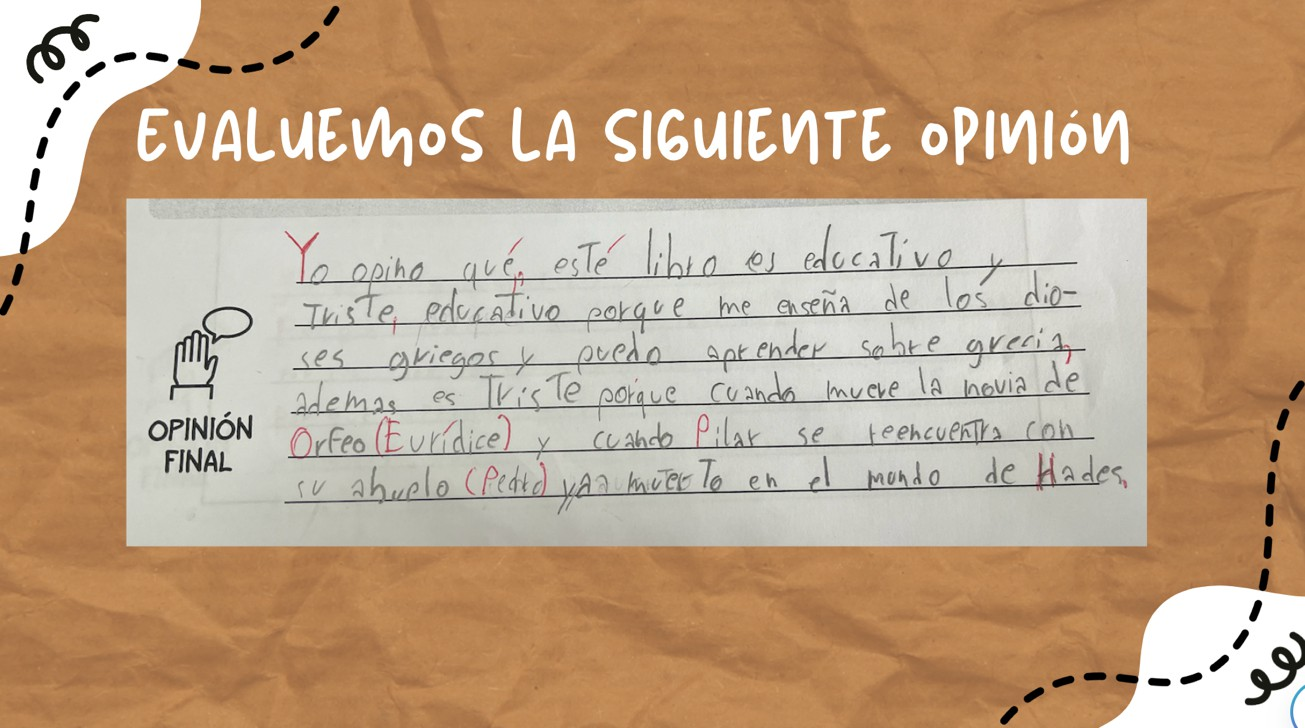 EVALUEMOS LA SIGUIENTE OPINIÓN
Yo opino qué, esté libro es educativo y
triste, educativo porque me enseña de los dio-
ses griegos y puedo aprender sobre grecia,
ademas es triste porque cuando muere la novia de
Orfeo (Eurídice) y cuando Pilar se reencuentra con
su abuelo (Pedro) ya muerto en el mundo de Hades.
OPINIÓN
FINAL